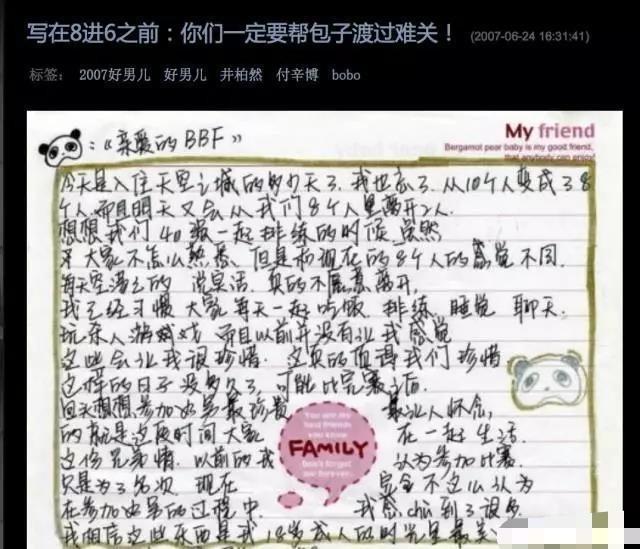 写在8进6之前：你们一定要帮包子渡过难关！ (2007-06-24 16:31:41)
标签： 2007好男儿 好男儿 井柏然 付辛博 bobo
My friend
Bergamot pear baby is my good friend,
that anybody can enjoy!
：《亲爱的BBF》
今天是入住天空之城的第几天了,我也忘了.从10个人变成了8
个人.而且明天又会从我们8个人里离开2人.
想想我们40强一起排练的时候 虽然
大家不怎么熟悉、但是和现在的8个人的感觉不同.
每天 说实话,真的不愿意离开.
我已经习惯大家每天一起吃饭 排练、睡觉 聊天.
玩杀人游戏 而且以前并没有让我感觉
这些会让我很珍惜. 这真的值得我们珍惜
这样的日子没多久了,可能比完赛之后.
回头想想参加 最珍贵 最让人怀念,
的就是这段时间大家 在一起生活.
这份兄弟情.以前的我 认为参加比赛
只是为了名次 现在 完全不这么认为
在参加 的过程中. 我感chu到了很多
我相信这些东西是我18岁成人的时光里最美
You are my
best friends
you know
FAMILY
Don't forget
me forever